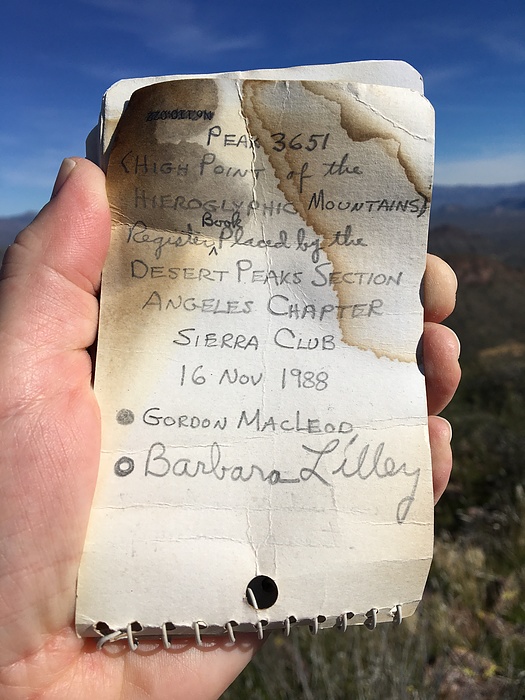 PEAK 3651
(HIGH POINT of the
HIEROGLYPHIC MOUNTAINS)
Register Book Placed by the
DESERT PEAKS SECTION
ANGELES CHAPTER
SIERRA CLUB
16 NOV 1988
GORDON MACLEOD
Barbara Lilley